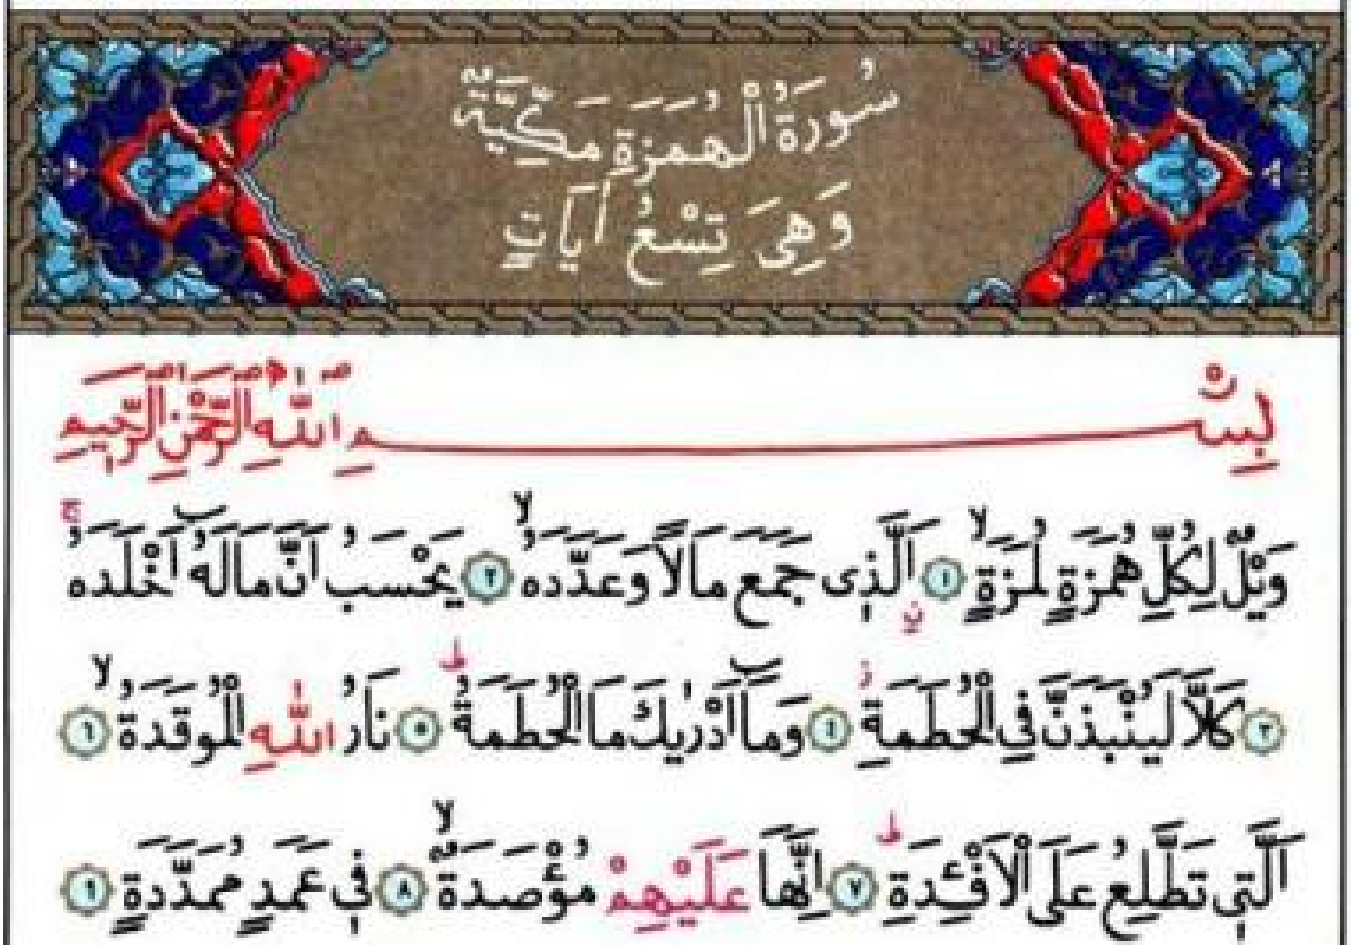 سُورَةُ الْهُمَزَةِ مَكِّيَّةٌ
وَهِيَ تِسْعُ اٰيَاتٍ
بِسْمِ اللّٰهِ الرَّحْمٰنِ الرَّحِيمِ
وَيْلٌ لِكُلِّ هُمَزَةٍ لُمَزَةٍۙ ﴿١﴾ اَلَّذٖى جَمَعَ مَالًا وَعَدَّدَهُۙ ﴿٢﴾ يَحْسَبُ اَنَّ مَالَهُٓ اَخْلَدَهُۚ
﴿٣﴾ كَلَّا لَيُنْبَذَنَّ فِى الْحُطَمَةِؗ ﴿٤﴾ وَمَٓا اَدْرٰيكَ مَا الْحُطَمَةُؕ ﴿٥﴾ نَارُ اللّٰهِ الْمُوقَدَةُۙ ﴿٦﴾
اَلَّتٖى تَطَّلِعُ عَلَى الْاَفْـِٔدَةِؕ ﴿٧﴾ اِنَّهَا عَلَيْهِمْ مُؤْصَدَةٌۙ ﴿٨﴾ فٖى عَمَدٍ مُمَدَّدَةٍ ﴿٩﴾